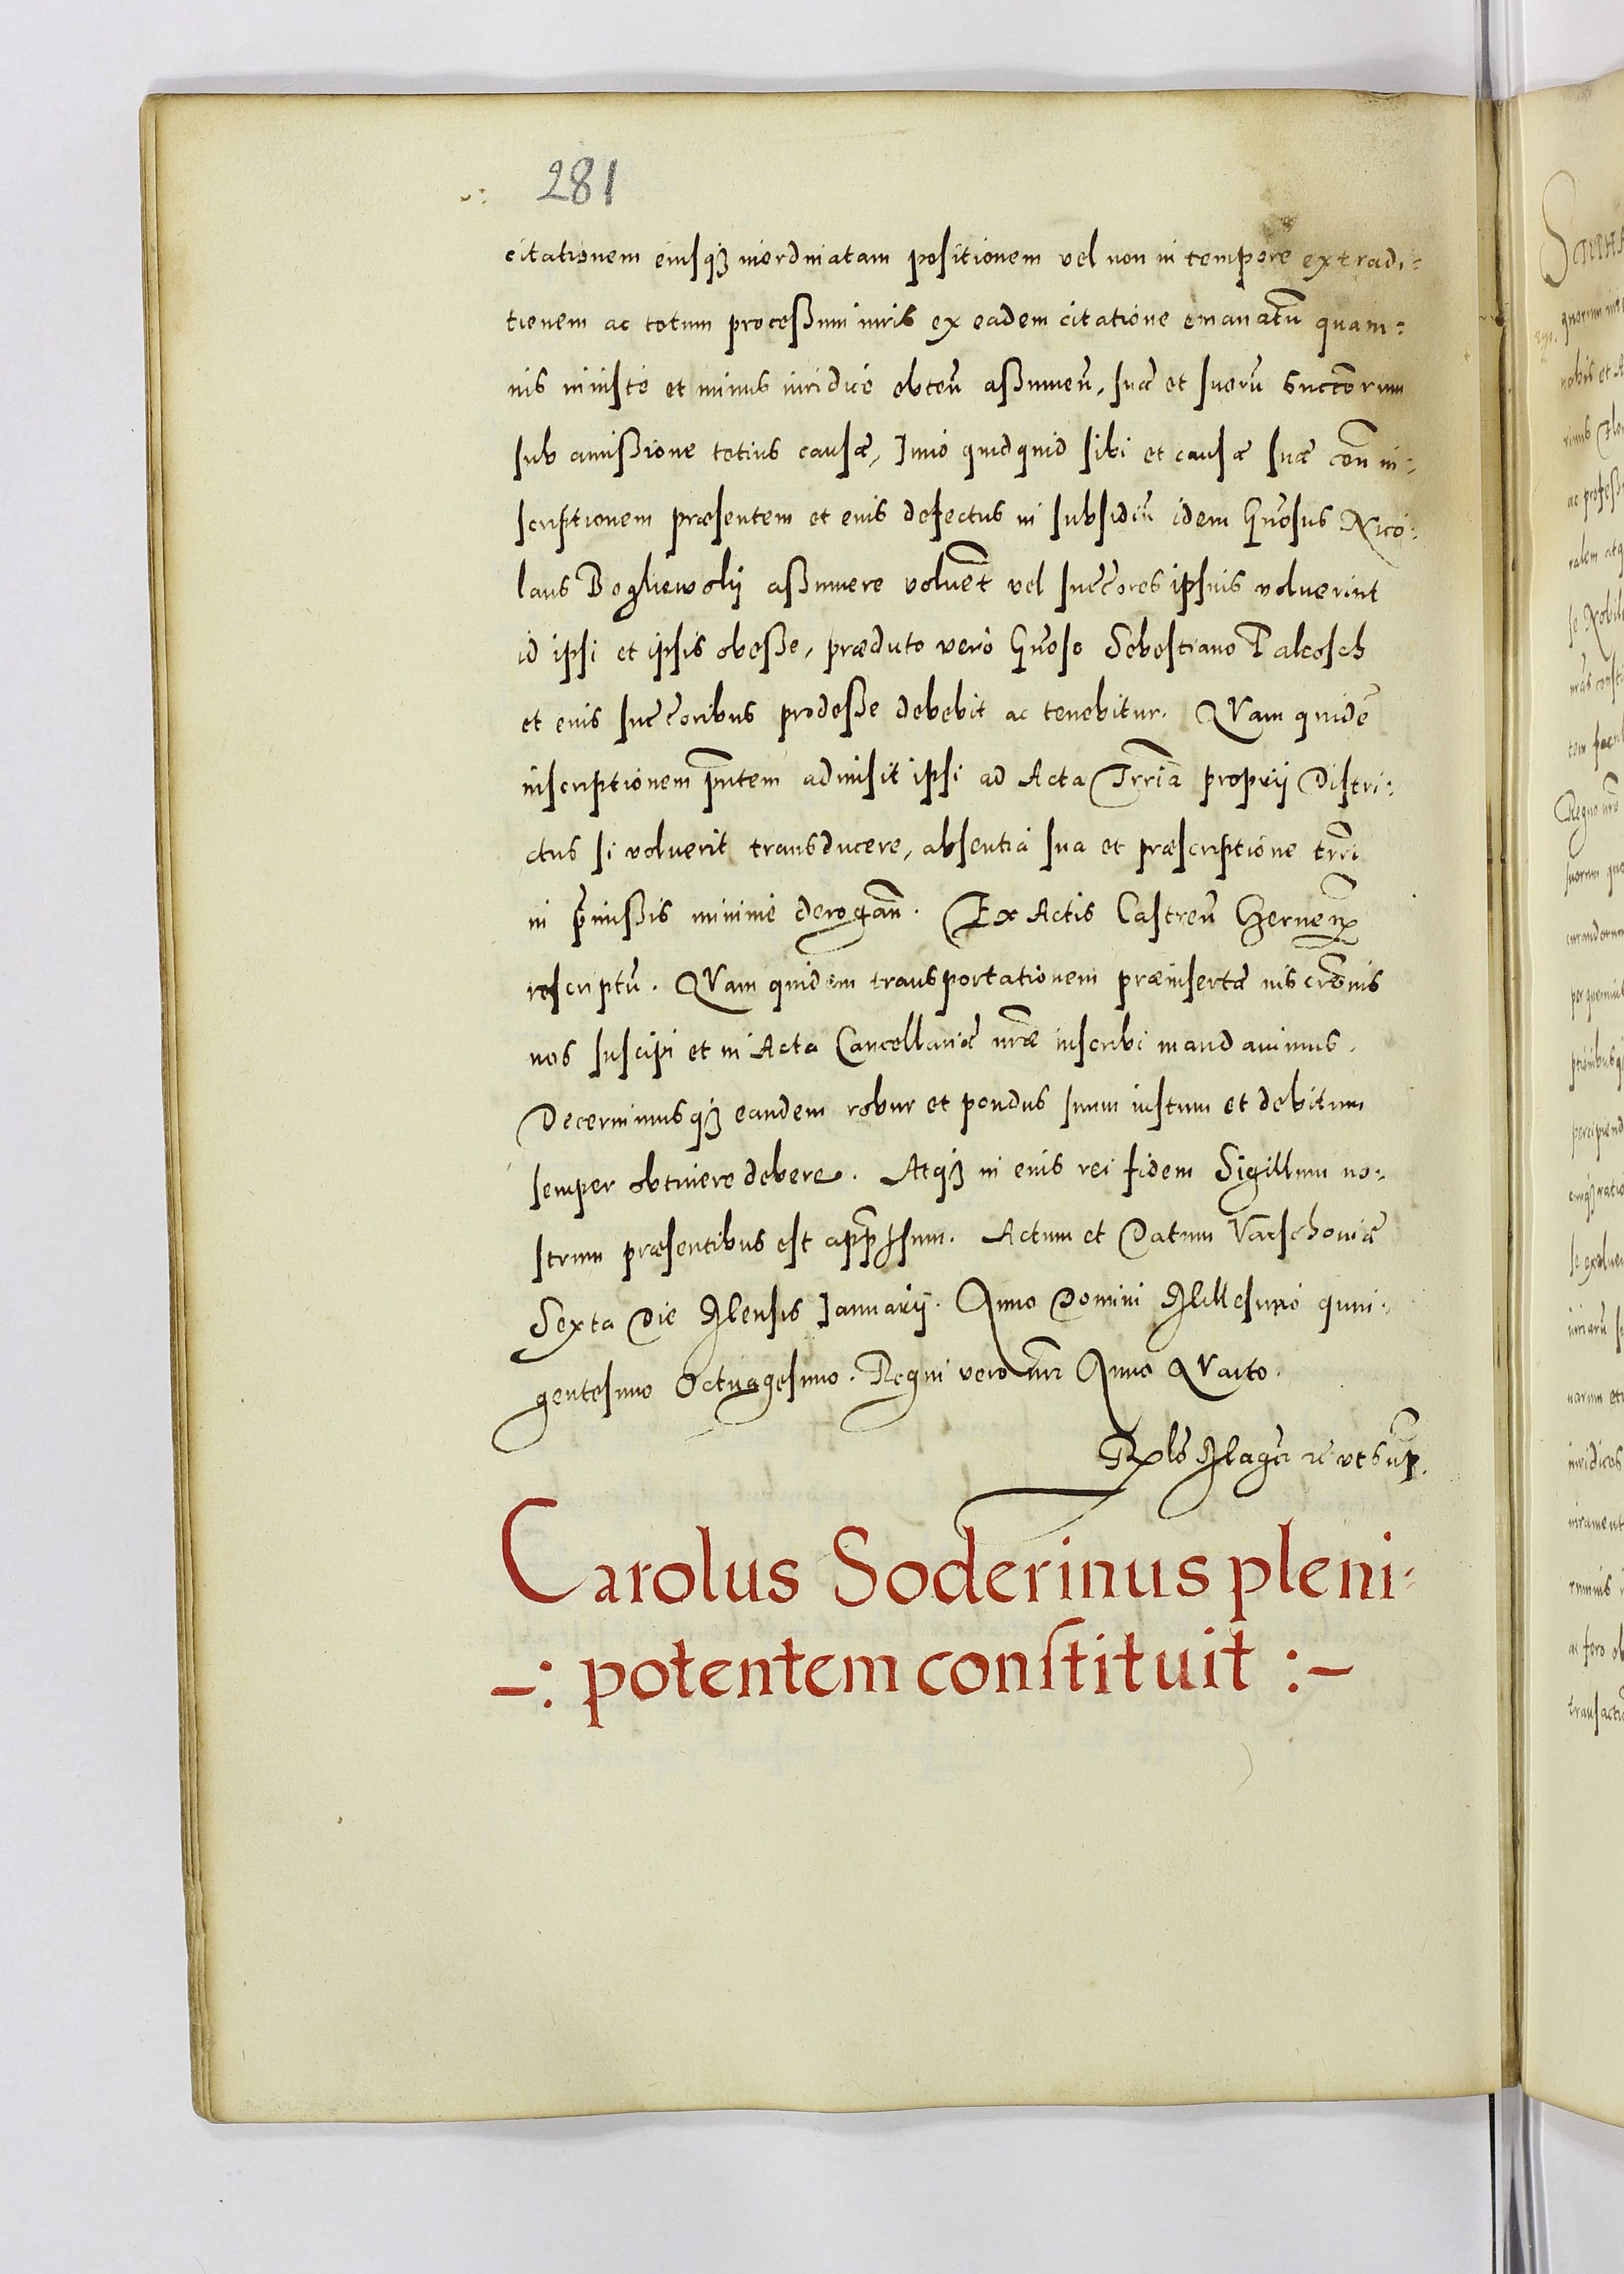 281
citationem eiusqȝ inordinatam positionem vel non in tempore extradi:
tionem ac totum processum iuris ex eadem citatione emanatū quam:
vis iniustè et minus iuridicè obteñ assumeñ, suã et suorū succorum
sub amissione totius causæ, Imò quidquid sibi et causæ suæ coñ in:
scriptionem præsentem et eius defectus in subsidiū idem Gñosus Nico:
laus Bogliewsky assumere voluet vel succores ipsius voluerint
id ipsi et ipsis obesse, prædicto verò Gñoso Sebestiano Palcosch
et eius succoribus prodesse debebit ac tenebitur. QVam quidē
inscriptionem pñtem admisit ipsi ad Acta Trria proprij Distri:
ctus si voluerit transducere, absentia sua et præscriptione trri
in p̄missis minimè derogañ. Ex Actis Castreñ Cerneñ
rescriptū. QVam quidem transportationem præinsertæ inscrōnis
nos suscipi et in Acta Cancellariæ nr̄æ inscribi mandavimus.
Decernimusqȝ eandem robur et pondus suum iustum et debitum
semper obtinere debere. Atqȝ in eius rei fidem Sigillum no:
strum præsentibus est appressum. Actum et Datum Varschoviæ
Sexta Die Mensis Ianuarij. Anno Domini Millesimo quin:
gentesimo Octuagesimo. Regni vero nri Anno QVarto.
Rlō Magci rē vt sup.
Carolus Soderinus pleni:
-: potentem constituit :-